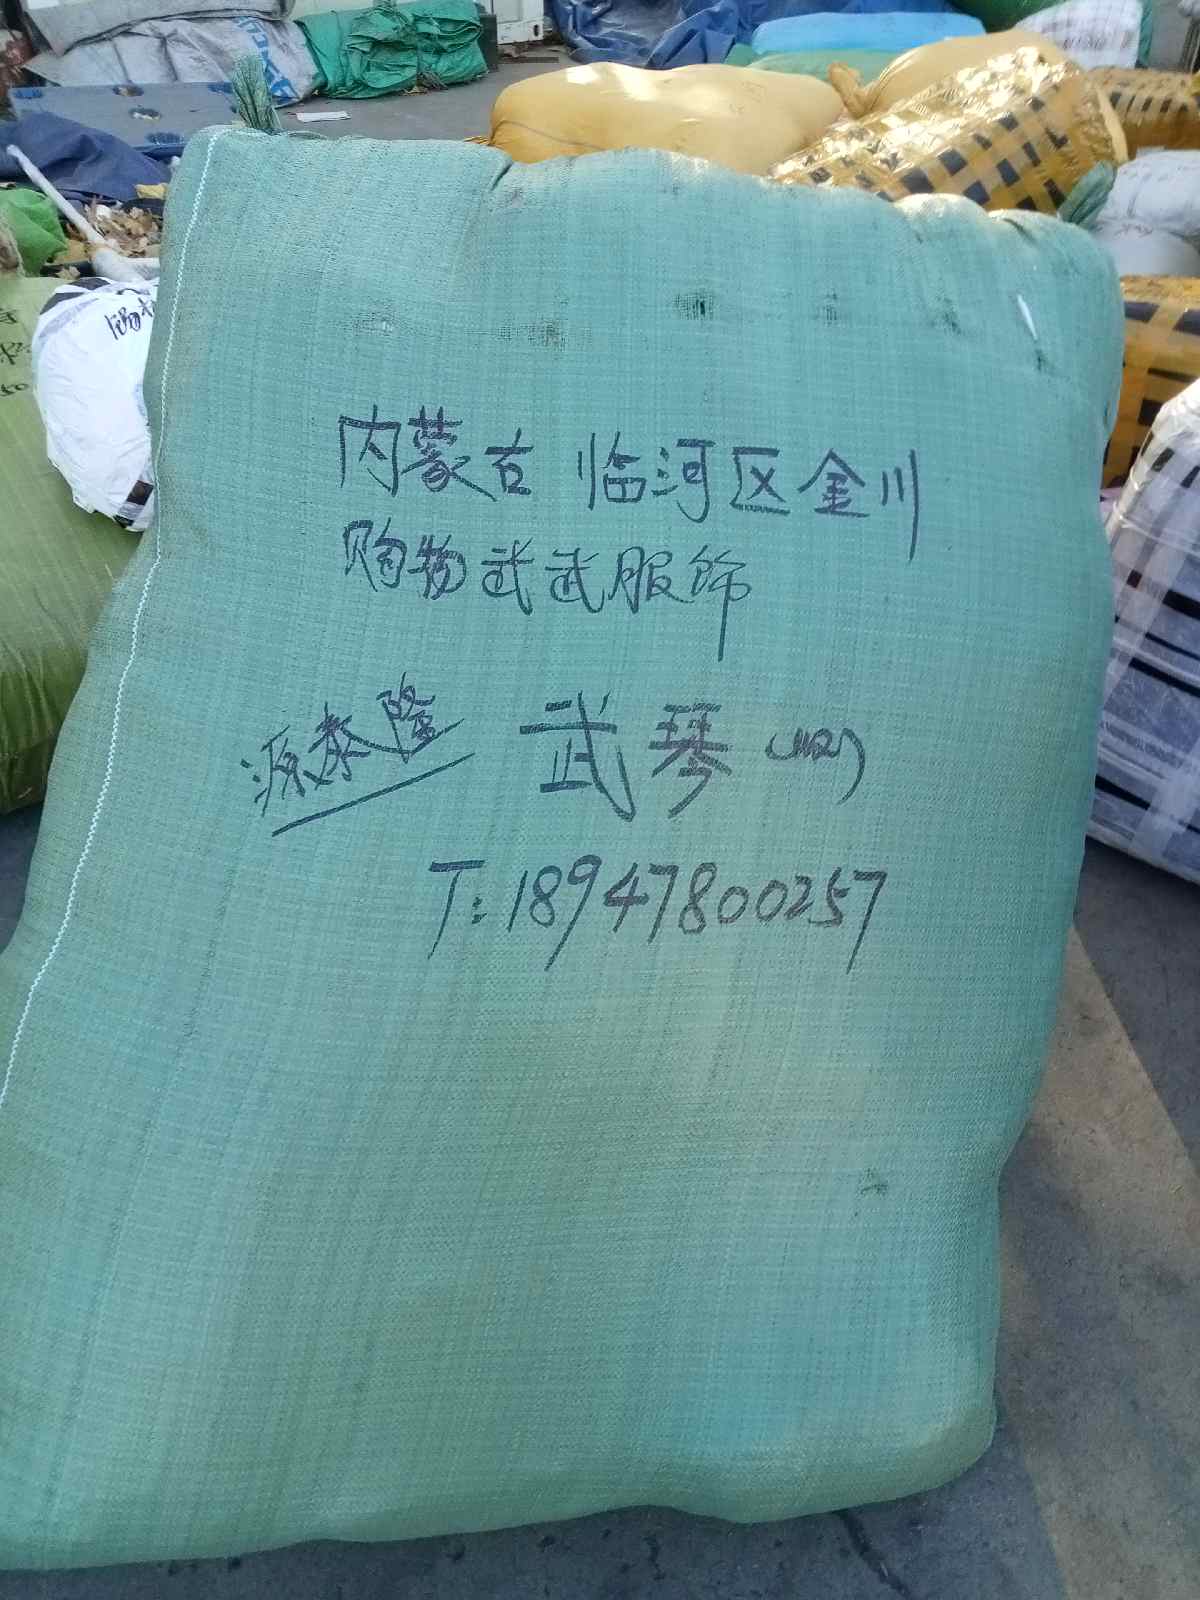 内蒙古 临河区金川
购物武武服饰
源泰隆 武琴
T:18947800257